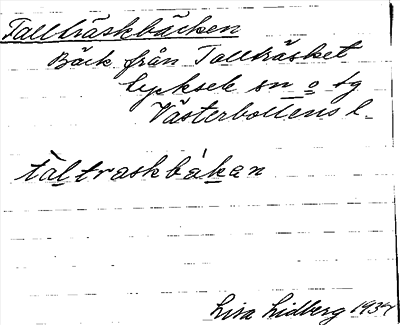 Tallträskbäcken
Bäck från Tallträsket
Lycksele sn o tg
Västerbottens l.
taltraskbäkən
Lisa Lidberg 1934